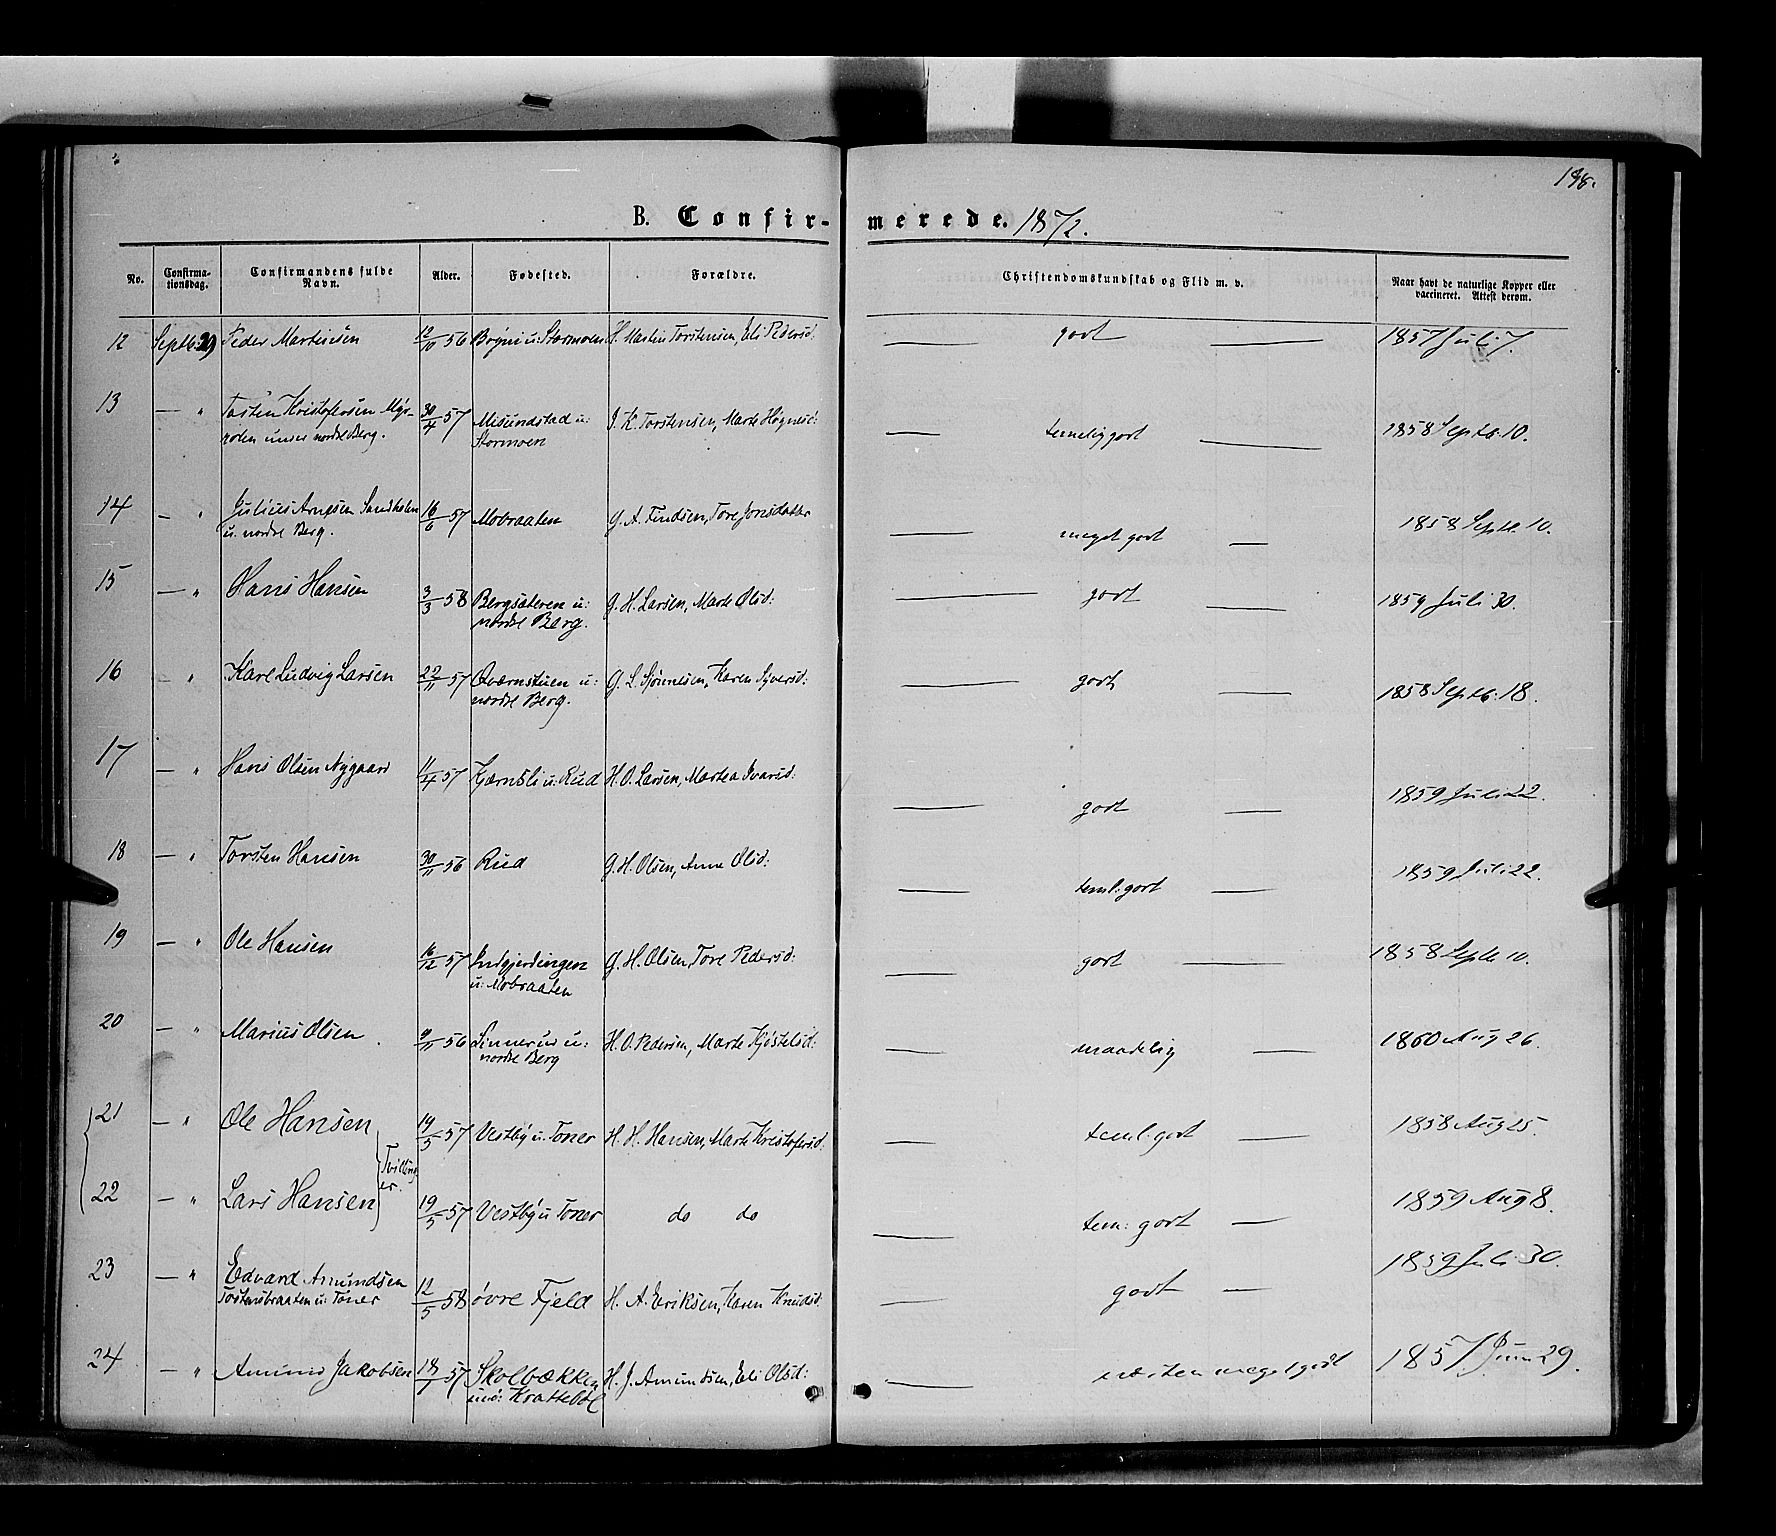 B. Confir- merede. 1872.
No. Confirma- tionsdag. Confirmandens fulde Navn. Alder. Fødested. Forældre. Christendomskundskab og Flid m. v. Naar havt de naturlige Kopper eller vaccineret. Attest derom.
12 Septb. 29 Peder Martinsen 12/10 56 Bøgni u: Stormoen H. Martin Torstensen, Eli Pedersd: — godt — 1857 Juli 7.
13 — " Torsten Kristofersen
under nordre Berg. 30/4 57 Misundstad u:
Stormoen J. K. Torstensen, Marte Høgnesd: — temelig godt — 1858 Septb. 10.
14 — " Julius Arnesen Sandholen
u: nordre Berg. 16/6 57 Mobraaten G. A. Findsen, Tore Jonsdatter — meget godt — 1858 Septb. 10.
15 — " Hans Hansen 3/3 58 Bergsæteren u:
nordre Berg. G. H. Larsen, Marte Olsd: — godt — 1859 Juli 30.
16 " Karl Ludvig Larsen 22/11 57 Qværnstuen u:
nordre Berg. G. L. Karen Syversd: — godt — 1858 Septb: 18.
17 — " Hans Olsen Nygaard 11/4 57 Kjærnsli u: Rud H. O. Larsen, Martea Ivarsd: — godt — 1859 Juli 22.
18 — " Torsten Hansen 30/11 56 Rud G. H. Olsen, Anne Olsd: — teml: godt — 1859 Juli 22.
19 — " Ole Hansen 16/12 57 Indgjerdingen
u: Mobraaten G. H. Olsen, Tore Pedersd: — godt — 1858 Septb 10.
20 — " Marius Olsen 9/11 56 Linnerud u:
nordre Berg H. O. Pedersen, Marte Kjøstelsd: — maadelig — 1860 Aug 26.
21 — " Ole Hansen 19/5 57 Vestby u: Toner H. H. Hansen, Marte Kristofersd: — teml: godt — 1858 Aug 25.
Tvilling
er.
22 — " Lars Hansen 19/5 57 Vestby u: Toner do do — tem: godt — 1859 Aug 8.
23 — " Edvard Amundsen
Torstensbraaten u: Toner 12/5 58 øvre Fjeld H. A. Eriksen, Karen Knudsd: — godt — 1859 Juli 30.
24 — " Amund Jakobsen 18/1 57 Skolbækken
und: Krattebøl H. J. Amundsen, Eli Olsd: — næsten meget godt 1857 Juni 29.